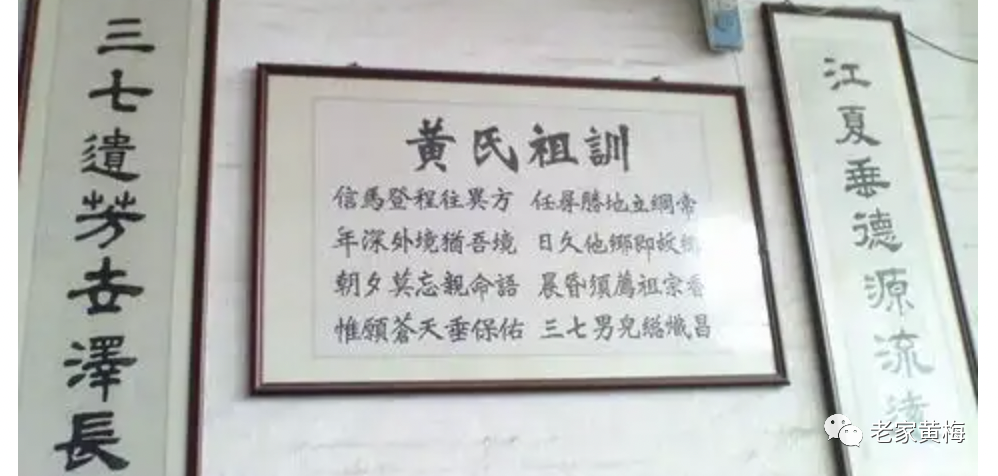 三七遺芳世澤長
黃氏祖訓
信馬登程往異方 任尋勝地立綱常
年深外境猶吾境 日久他鄉即故鄉
朝夕莫忘親命語 晨昏須薦祖宗香
惟願蒼天垂保佑 三七男兒總熾昌
江夏垂德源流
老家黄梅